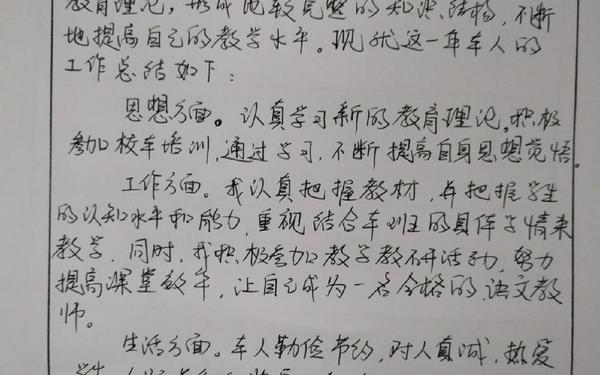 教育理论，形成比较完整的知识结构，不断
地提高自己的教学水平。现就这一年车人的
工作总结如下：
思想方面。认真学习新的教育理论，积极
参加校车培训，通过学习，不断提高自身思想觉悟。
工作方面。我认真把握教材，并把握学生
的认知水平和能力，重视结合车班的具体学情来
教学，同时，我积极参加教学教研活动，努力
提高课堂效率，让自己成为一名合格的语文教
师。
生活方面。车人勤俭节约，对人真诚，热爱